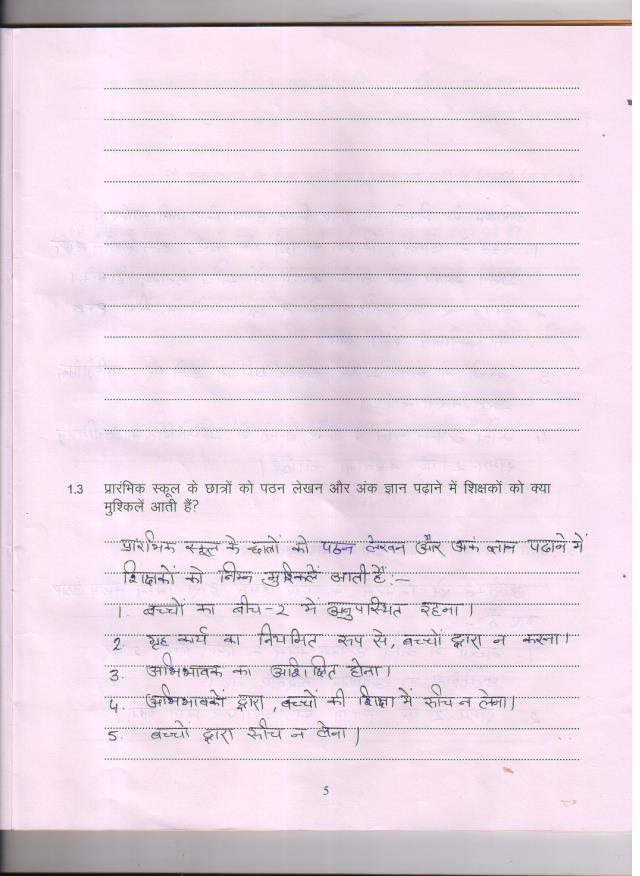 1.3 प्रारंभिक स्कूल के छात्रों को पठन लेखन और अंक ज्ञान पढ़ाने में शिक्षकों को क्या
मुश्किलें आती हैं?
प्रारंभिक स्कूल के छात्रों को पठन लेखन और अकं ज्ञान पढाने में
शिक्षकों को निम्न मुश्किलें आती हैं:–
1. बच्चों का बीच-2 में अनुपस्थित रहना।
2. गृह कार्य का नियमित रूप से, बच्चों द्वारा न करना।
3. अभिभावक का अशिक्षित होना।
4. अभिभावकों द्वारा, बच्चों की शिक्षा में रूचि न लेना।
5. बच्चों द्वारा रूचि न लेना।
5